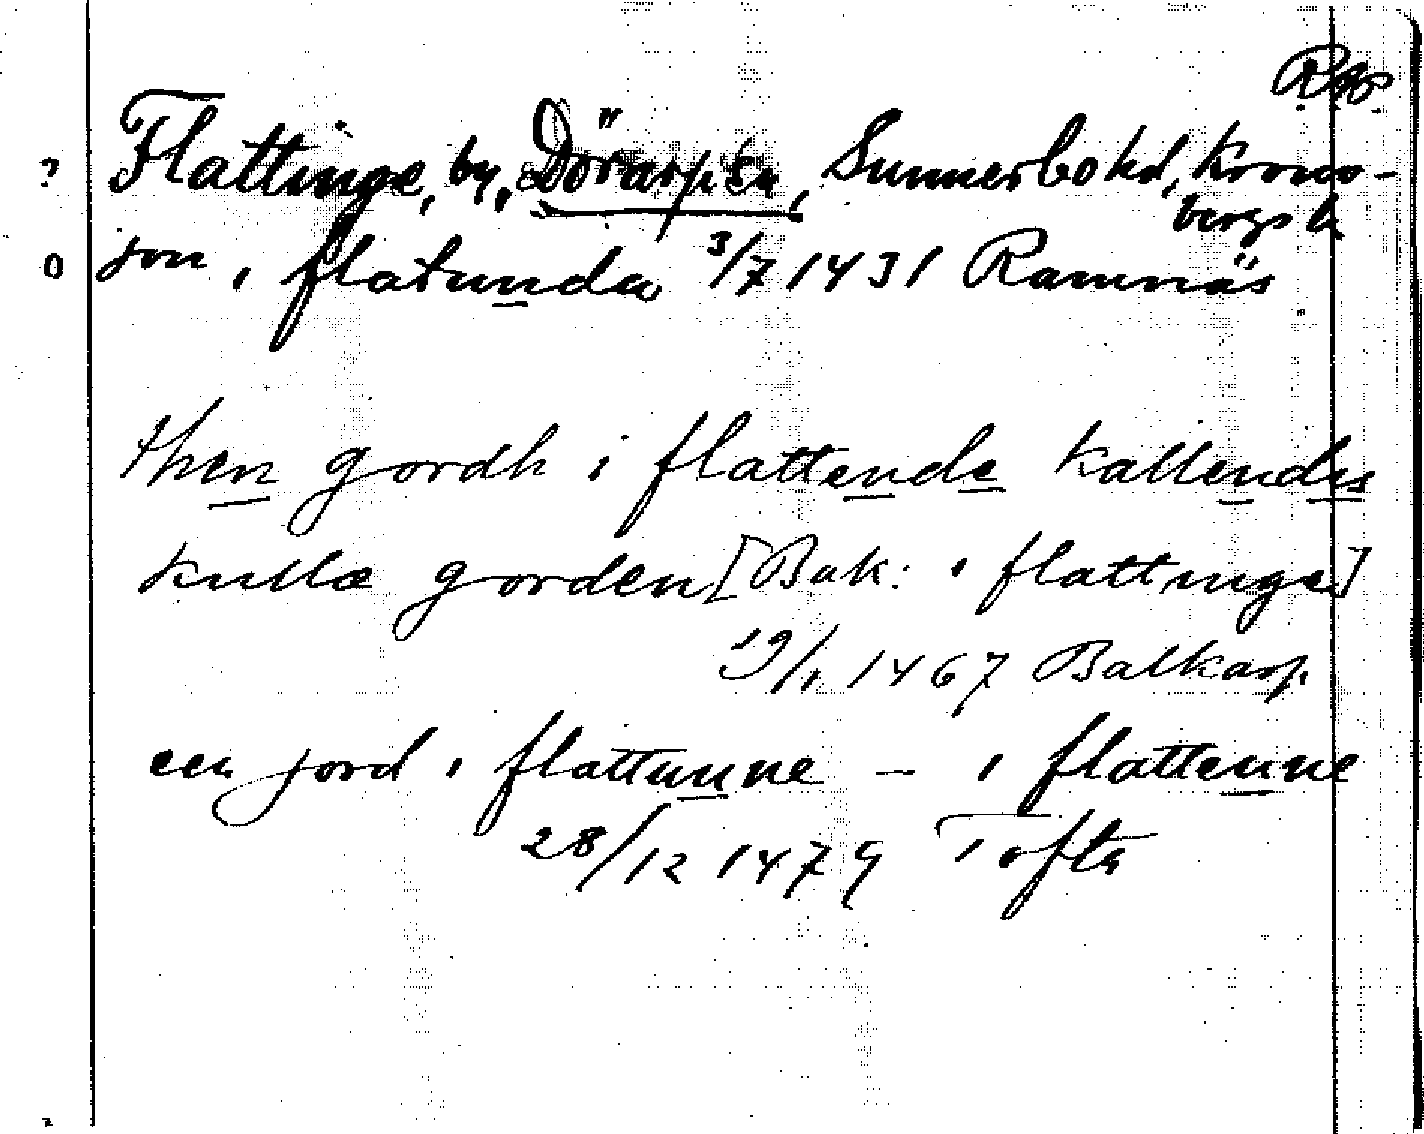 RAp
Flattinge, by, Dörarps sn, Sunnerbo hd, Krono-
bergs l.
jon i flatunda 3/7 1431 Ramnäs
then gordh i flattende kallendes
kulla gorden [Bak: i flattinge]
19/1 1467 Balkarp.
een jord i flattunne – i flattenne
28/12 1479 Tofta